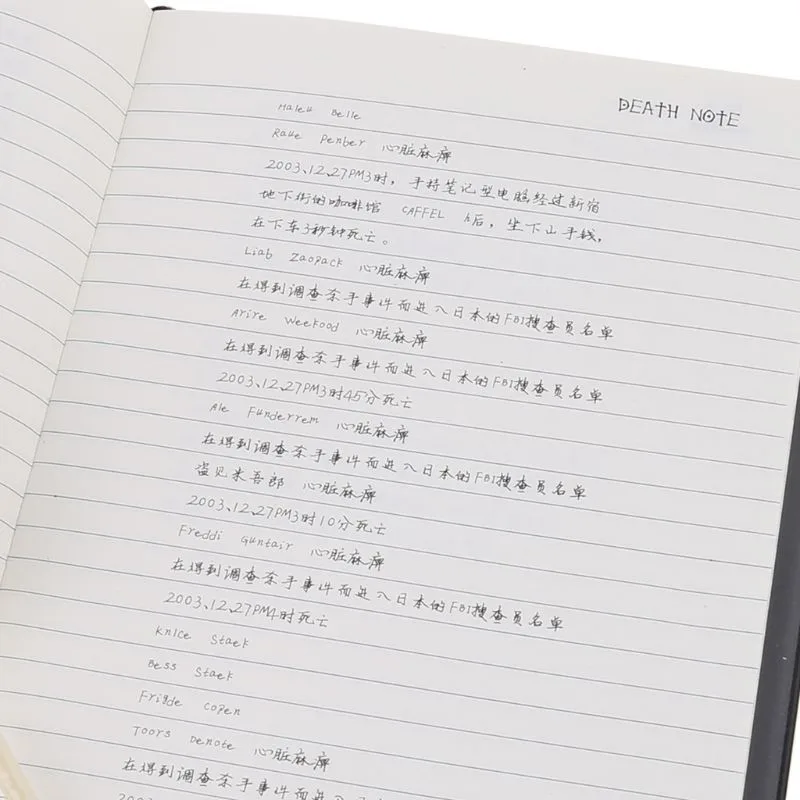 DEATH NOTE
Maleu Belle
Raue Penber 心脏麻痹
2003、12、27PM3时，手持笔记型电脑经过新宿
地下街的咖啡馆 CAFFEL 后，坐下山手钱，
在下车3秒钟死亡。
Liab Zaopack 心脏麻痹
在得到调查杀手事件而进入日本的FBI搜查员名单
Arire Weekood 心脏麻痹
在得到调查杀手事件而进入日本的FBI搜查员名单
2003、12、27PM3时45分死亡
Ale Funderrem 心脏麻痹
在得到调查杀手事件而进入日本的FBI搜查员名单
盗见米吾郎 心脏麻痹
2003、12、27PM3时10分死亡
Freddi Guntair 心脏麻痹
在得到调查杀手事件而进入日本的FBI搜查员名单
2003、12、27PM4时死亡
Knice Staek
Bess Staek
Frigde Copen
Toors Denote 心脏麻痹
在得到调查杀手事件而进入日本的FBI搜查员名单